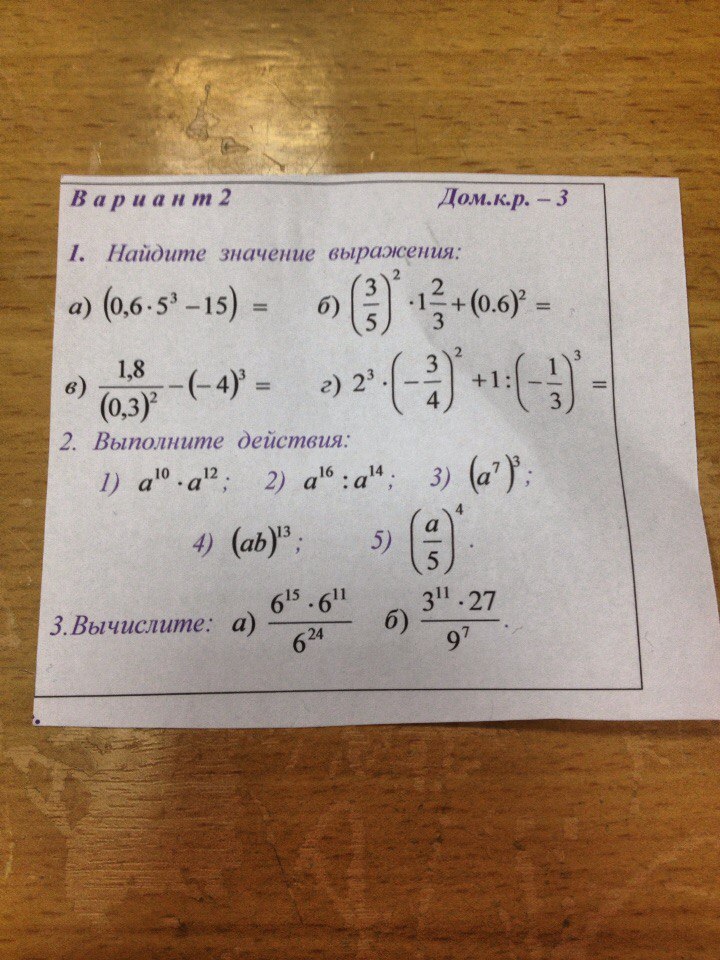 Вариант 2 Дом.к.р. – 3
1. Найдите значение выражения:
а) (0,6·5³ – 15) = б) (3/5)² · 1 2/3 + (0.6)² =
в) 1,8/(0,3)² – (– 4)³ = г) 2³ · (– 3/4)² + 1 : (– 1/3)³ =
2. Выполните действия:
1) a¹⁰ · a¹² ; 2) a¹⁶ : a¹⁴ ; 3) (a⁷)³ ;
4) (ab)¹³ ; 5) (a/5)⁴ .
3.Вычислите: а) 6¹⁵ · 6¹¹/6²⁴ б) 3¹¹ · 27/9⁷ .